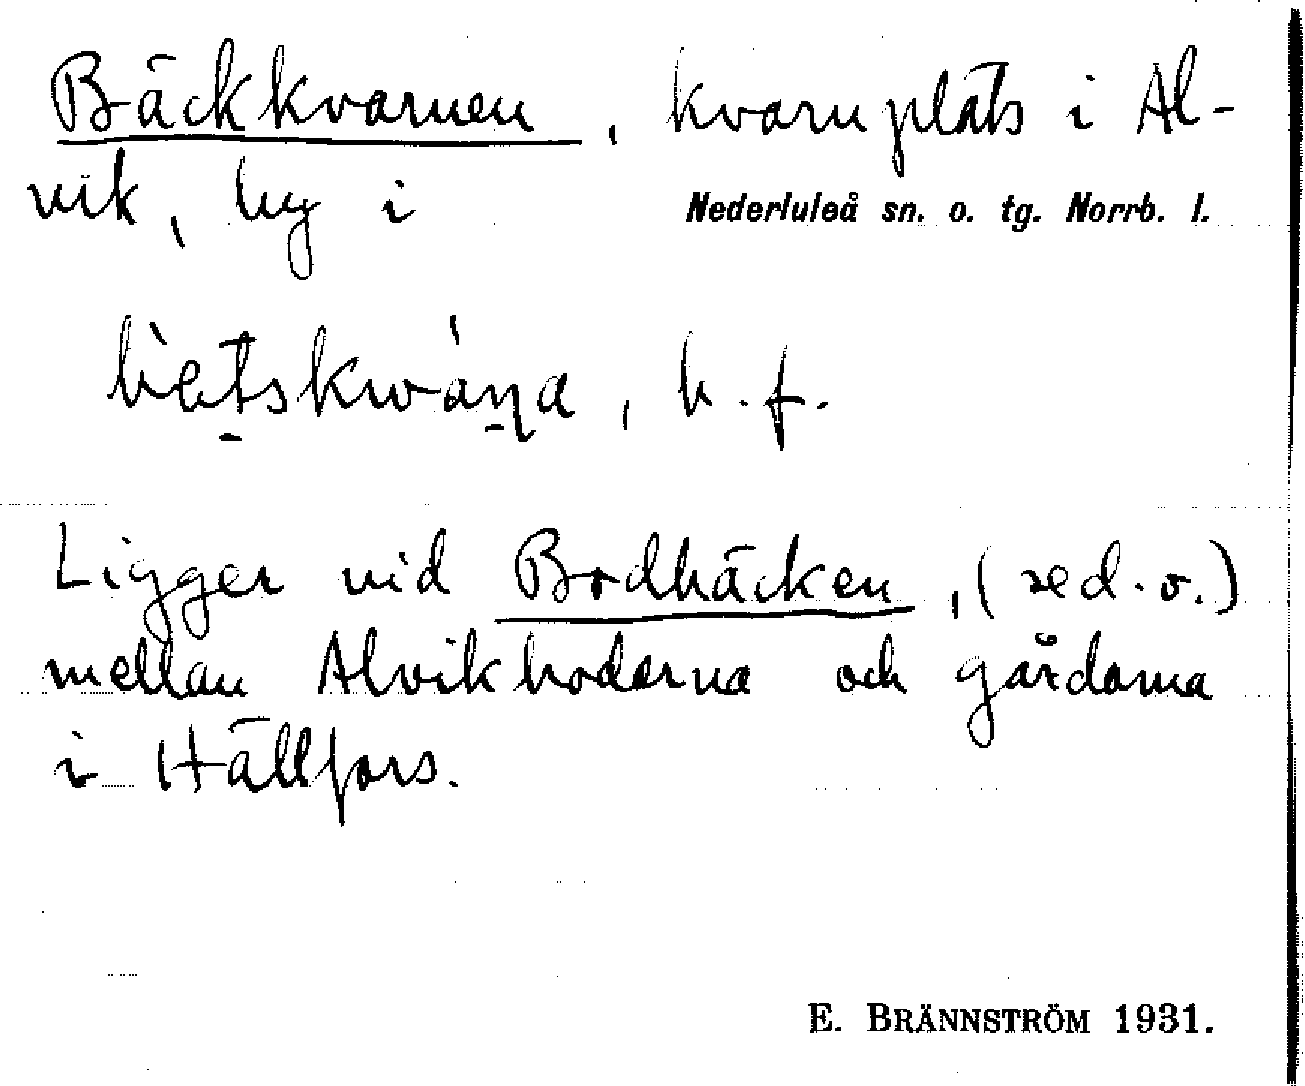 Bäckkvarnen, kvarnplats i Al-
vik, by i Nederluleå sn. o. tg. Norrb. l.
b. f.
Ligger vid Bodbäcken, (sed. o.)
mellan Alvikboderna och gårdarna
i Hällfors.
E. BRÄNNSTRÖM 1931.